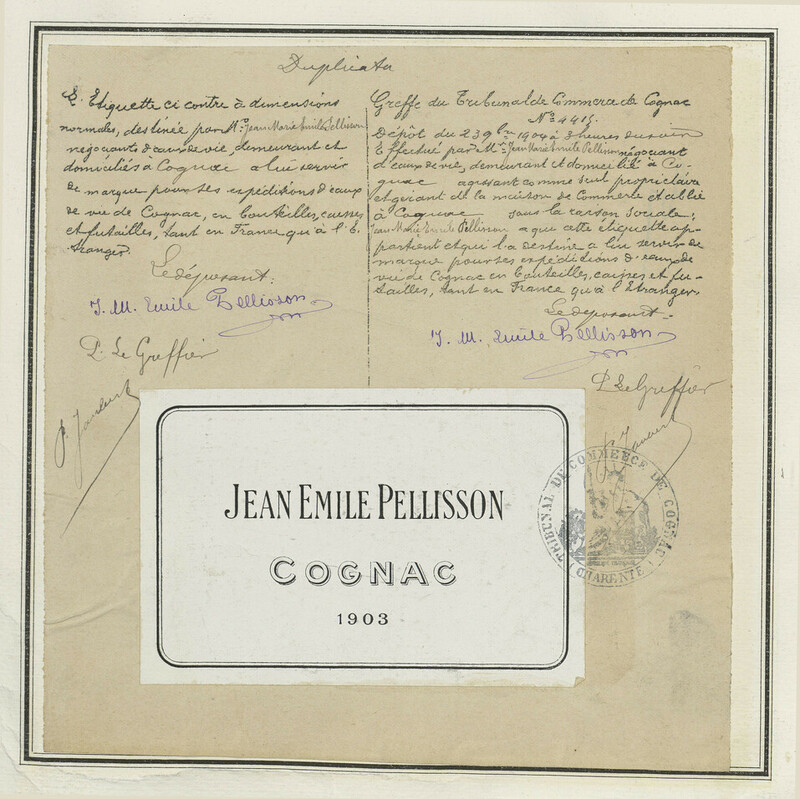 Duplicata
L'Etiquette ci contre à dimensions
normales, destinée par Mr. Jean Marie Emile Pellisson
négociant d'eaux de vie, demeurant et
domiciliés à Cognac a lui servir
de marque pour ses expéditions d'eaux
de vie de Cognac, en bouteilles, caisses
et futailles, tant en France qu'à l'E
tranger.
Le déposant:
J. M. Emile Pellisson
P. Le Greffier
Greffe du Tribunal de Commerce de Cognac
No. 4415.
Dépôt du 23 9bre 1904 à 3 heures du soir
Effectué par Mr. Jean Marie Emile Pellisson négociant
d'eaux de vie, demeurant et domicilié à Co-
gnac agissant comme seul propriétaire
et gérant de la maison de Commerce établie
à Cognac sous la raison sociale;
Jean Marie Emile Pellisson a qui cette étiquette ap-
partient et qui l'a destine a lui servir de
marque pour ses expéditions d'eaux de
vie de Cognac en bouteilles, caisses et fu-
tailles, tant en France qu'à l'Etranger.
Le déposant.
J. M. Emile Pellisson
P. Le Greffier
JEAN EMILE PELLISSON
COGNAC
1903
TRIBUNAL DE COMMERCE DE COGNAC
CHARENTE